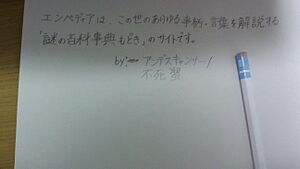 エンペディアは、この世のあらゆる事柄・言葉を解説する
「謎の百科事典もどき」のサイトです。
by: アンデスキャンサー/
不死蟹